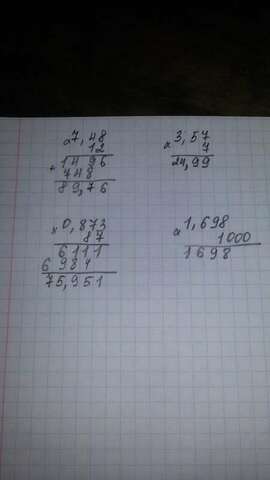 x 7,48
12
+ 1496
748
89,76
x 3,57
7
24,99
x 0,873
87
6111
6984
75,951
x 1,698
1000
1698